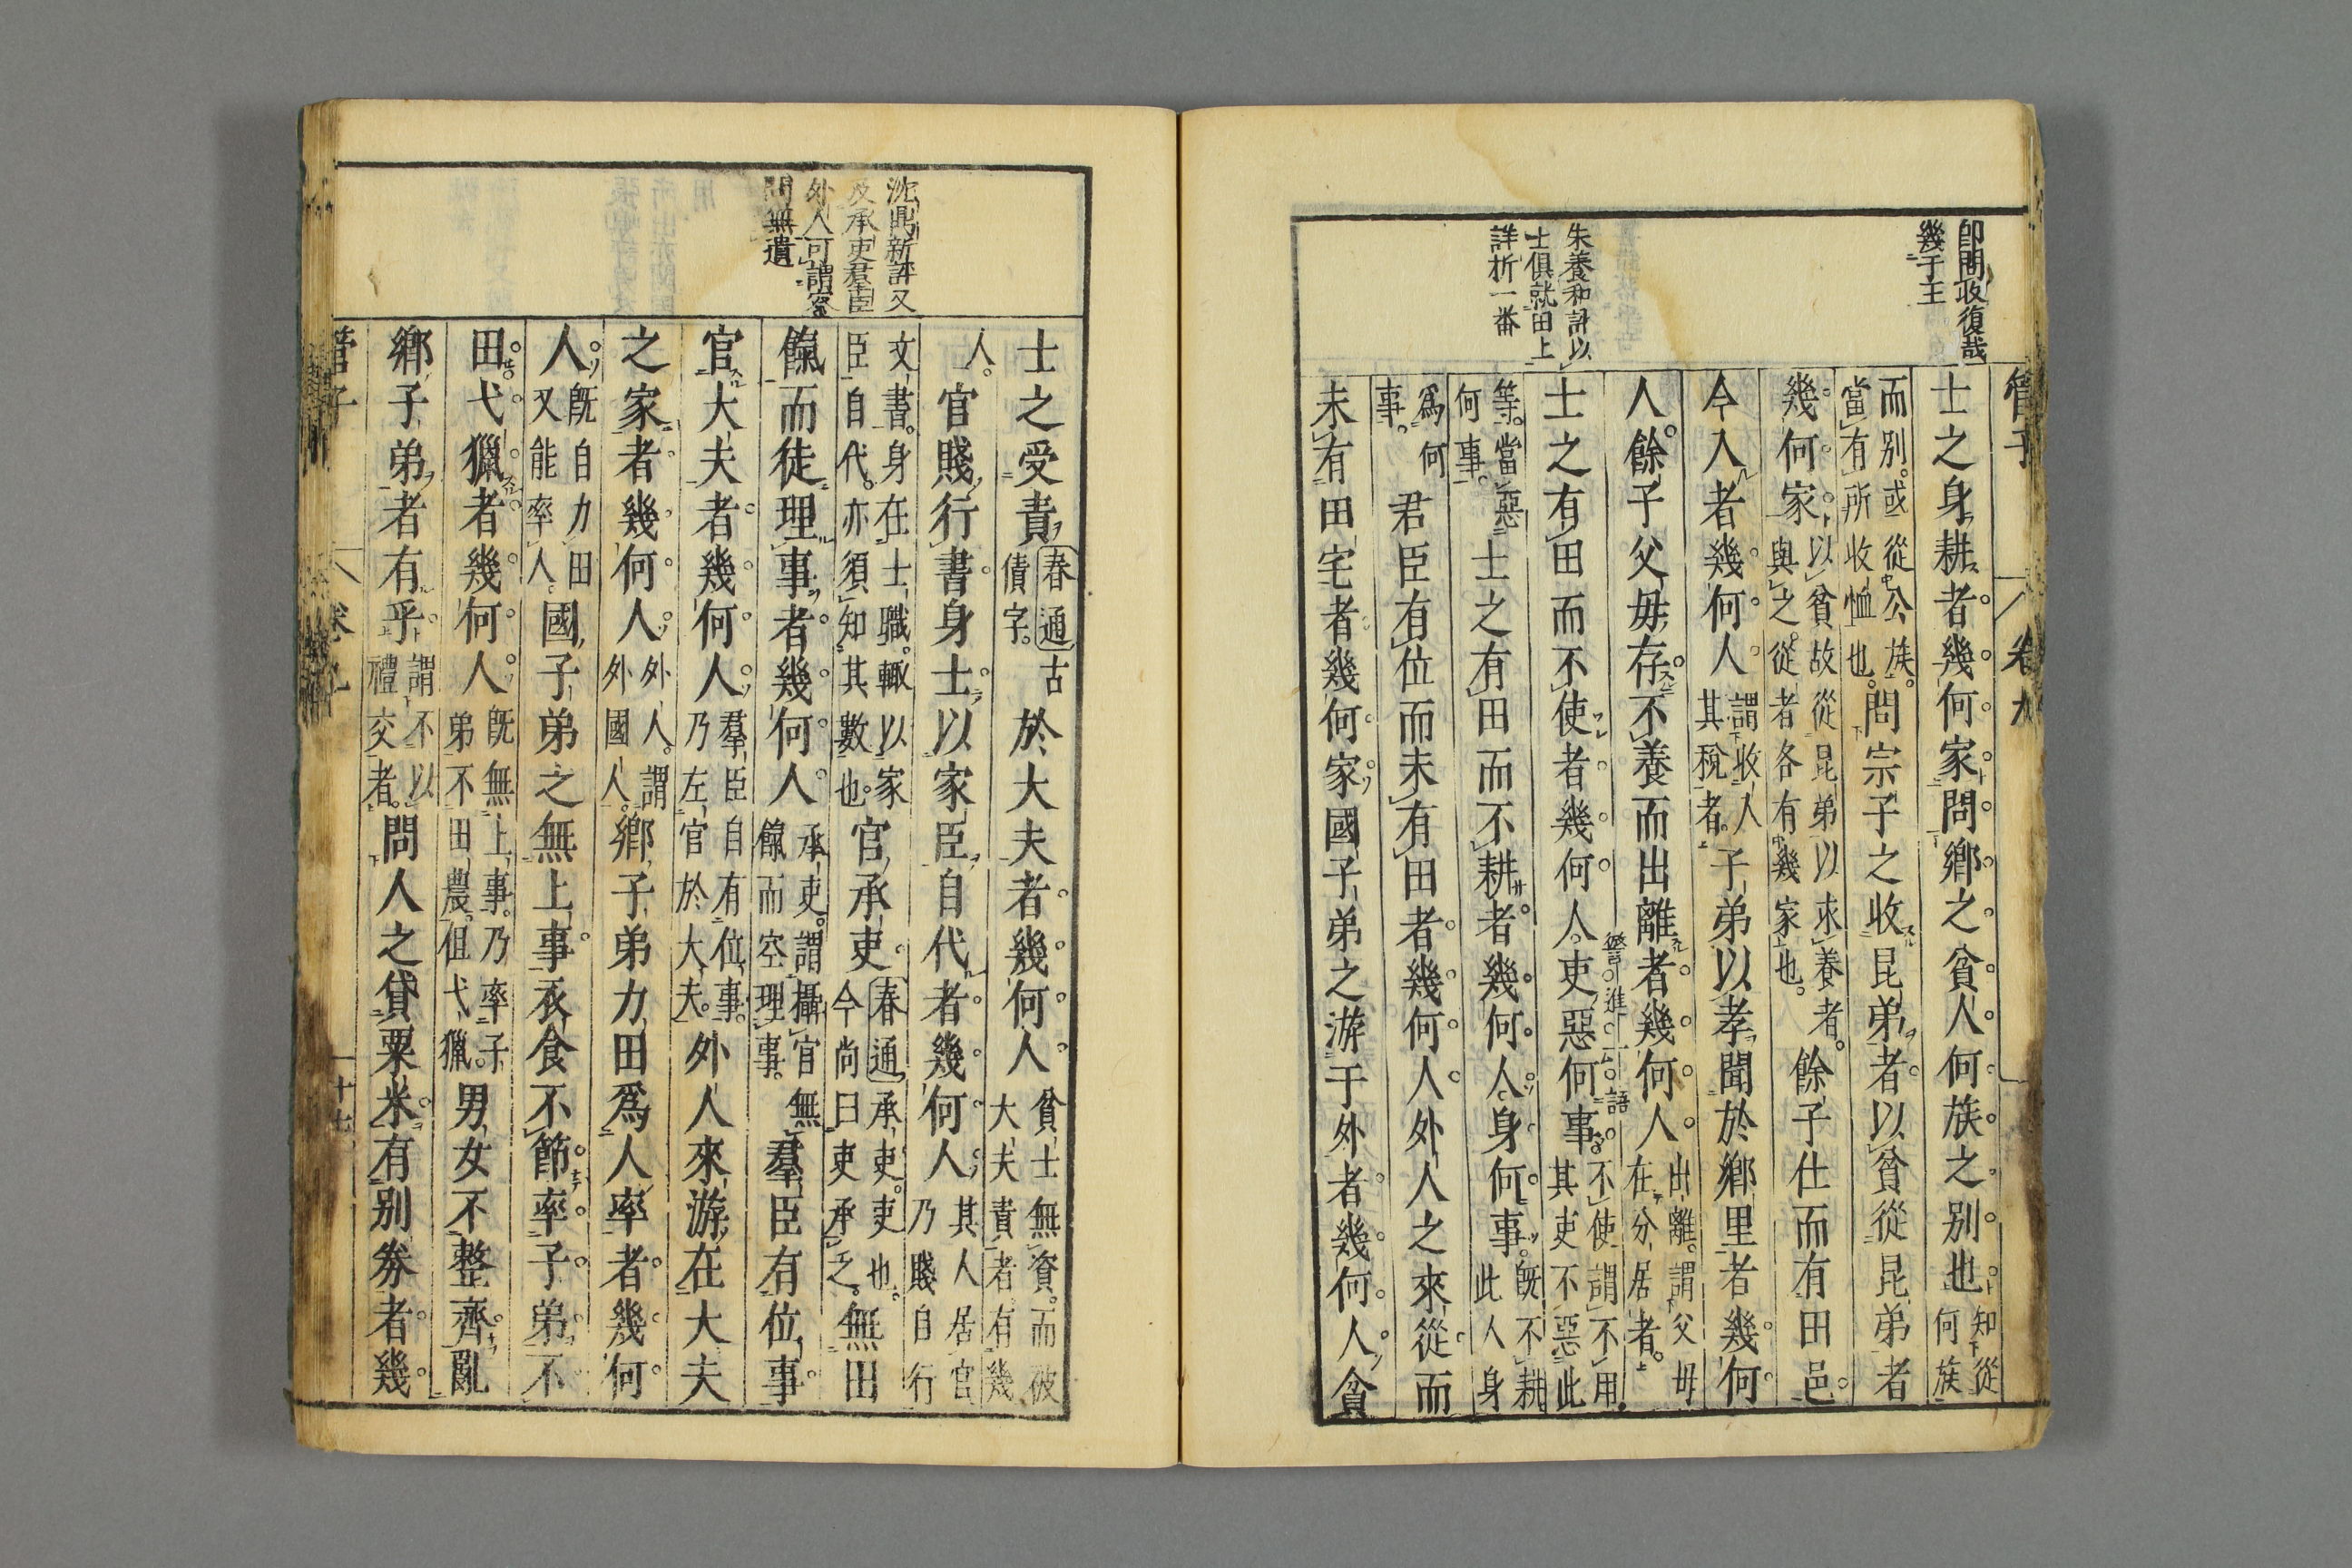 卽問收復哉
幾于王
朱養和評以
士俱就田上
詳折一番
管子 卷九
士之身耕者幾何家問鄉之貧人何族之别也知從何族
而别。或從公族。當有所收恤也。問宗子之收昆弟者以貧從昆弟者
幾何家以貧故從昆弟以求養者。與之。從者各有幾家也。餘子仕而有田邑
今入者幾何人謂收人其稅者。子弟以孝聞於鄉里者幾何
人餘子父母存不養而出離者幾何人出離。謂父母在分居者。
警進一語
士之有田而不使者幾何人吏惡何事不使謂不用其吏不惡此
等。當惡何事。士之有田而不耕者幾何人身何事既不耕此人身
爲何事。君臣有位而未有田者幾何人外人之來從而
未有田宅者幾何家國子弟之游于外者幾何人貧
沈鼎新評又
及承吏羣臣
外人可謂察
問無遺
士之受責春通古債字。於大夫者幾何人貧士無資。而被大夫責者。有幾
人。官賤行書身士以家臣自代者幾何人其人居官乃賤自行
文書。身在士職。輙以家臣自代。亦須知其數也。官承吏春通承吏。吏也。今尚曰吏承之。無田
餼而徒理事者幾何人承吏。謂攝官無餼而空理事。羣臣有位事
官大夫者幾何人羣臣自有位事。乃左官於大夫。外人來游在大夫
之家者幾何人外人。謂外國人。鄉子弟力田爲人率者幾何
人。既自力田又能率人。國子弟之無上事衣食不節率子弟不
田弋獵者幾何人既無上事。乃率子弟不田農。但弋獵。男女不整齊亂
鄉子弟者有乎謂不以禮交者。問人之貸粟米有别券者幾
管子 卷九 十七